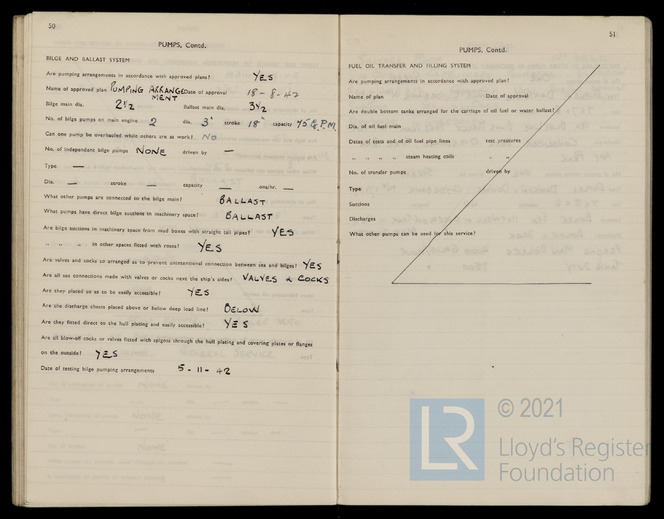 50
PUMPS, Contd.
BILGE AND BALLAST SYSTEM
Are pumping arrangements in accordance with approved plans? YES
Name of approved plan PUMPING ARRANGEMENT Date of approval 18-8-42
Bilge main dia. 2½ Ballast main dia. 3½
No. of bilge pumps on main engine 2 dia. 3" stroke 18" capacity 45 G.P.M.
Can one pump be overhauled while others are at work? NO
No. of independent bilge pumps NONE driven by —
Type —
Dia. — stroke — capacity — ons/hr. —
What other pumps are connected to the bilge main? BALLAST
What pumps have direct bilge suctions in machinery space? BALLAST
Are bilge suctions in machinery space from mud boxes with straight tail pipes? YES
„ „ „ in other spaces fitted with roses? YES
Are valves and cocks so arranged as to prevent unintentional connection between sea and bilges? YES
Are all sea connections made with valves or cocks next the ship's sides? VALVES & COCKS
Are they placed so as to be easily accessible? YES
Are the discharge chests placed above or below deep load line? BELOW
Are they fitted direct to the hull plating and easily accessible? YES
Are all blow-off cocks or valves fitted with spigots through the hull plating and covering plates or flanges
on the outside? YES
Date of testing bilge pumping arrangements 5-11-42
51
PUMPS, Contd.
FUEL OIL TRANSFER AND FILLING SYSTEM
Are pumping arrangements in accordance with approved plan?
Name of plan Date of approval
Are double bottom tanks arranged for the carriage of oil fuel or water ballast?
Dia. of oil fuel main
Dates of tests and of oil fuel pipe lines test pressures
„ „ „ „ steam heating coils „ „
No. of transfer pumps driven by
Type
Suctions
Discharges
What other pumps can be used for this service?
LR
© 2021
Lloyd's Register
Foundation